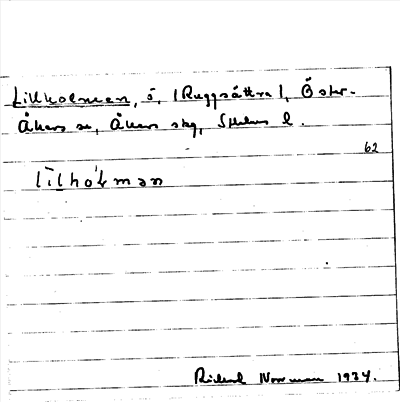 Lillholmen, ö, (Ruggsättra), Öster-
Åkers sn, Åkers skg, Sthlms l.
62
lìlhólmən
Rickard Norrman 1934.